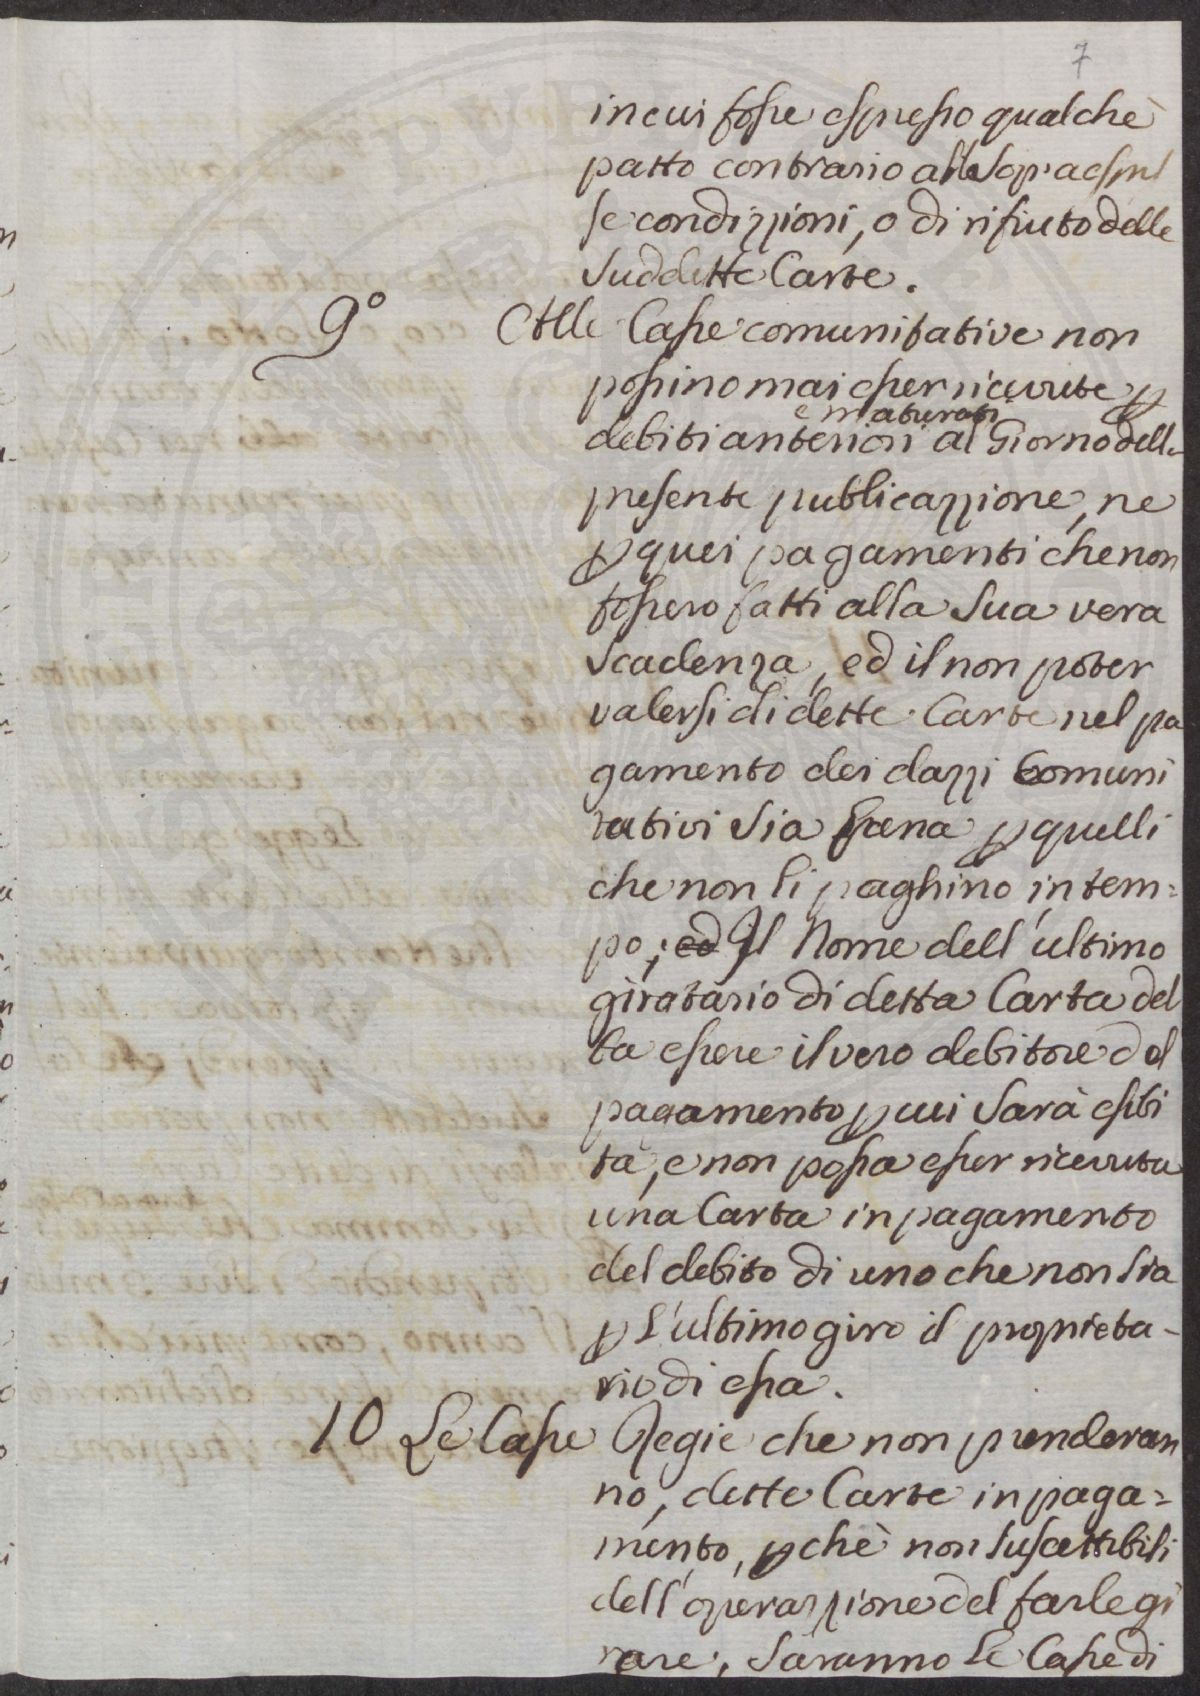 7
in cui fosse espresso qualchè
patto contrario alle Sopraespres
se condizzioni, o di rifiuto delle
Suddette Carte.
9° Alle Casse comunitative non
possino mai esser ricevute p
e maturati
debiti anteriori al Giorno dell=
presente publicazzione, ne
p quei pagamenti che non
fossero fatti alla Sua vera
Scadenza, ed il non poter
valersi di dette Carte nel pa
gamento dei dazzi Comuni
tativi Sia Pena p quelli
che non li paghino in tem=
po; ed Il Nome dell'ultimo
giratario di detta Carta deb
ba essere il vero debitore del
pagamento p cui Sarà esibi
ta, e non possa esser ricevuta
una Carta in pagamento
del debito di uno che non Sia
p L'ultimo giro il proprieta-
rio di essa.
10 Le Casse Regie che non prenderan
no, dette Carte in paga=
mento, pchè non Suscettibili
dell'operazzione del farle gi
rare, Saranno Le Casse di